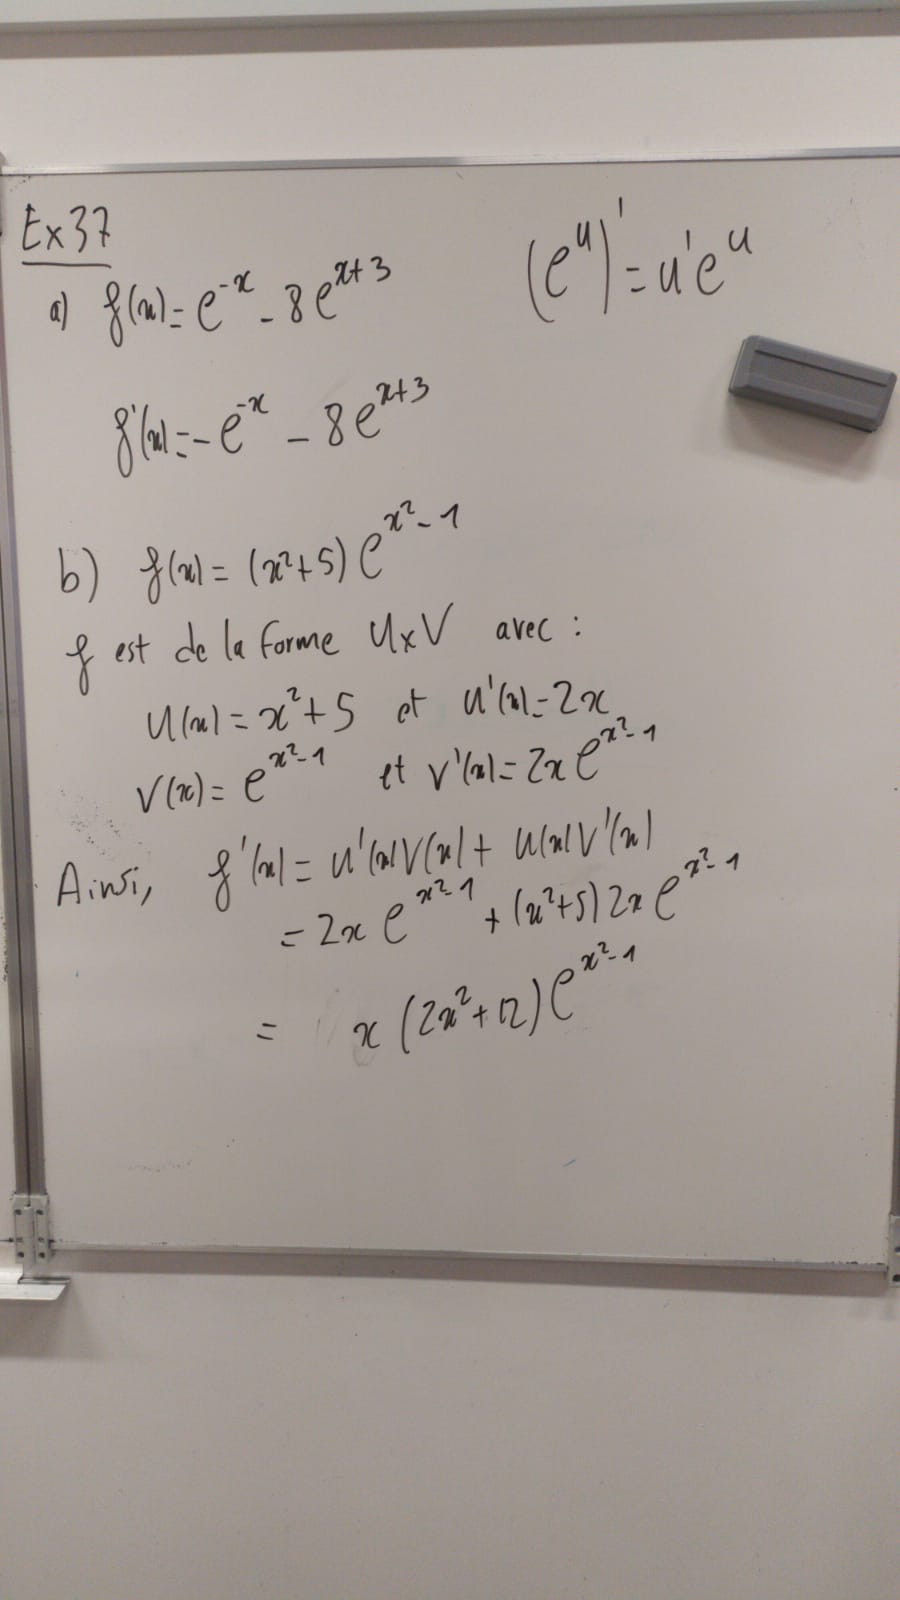 Ex 37
(e^u)' = u'e^u
a) f(x) = e^{-x} - 8e^{x+3}
f'(x) = -e^{-x} - 8e^{x+3}
b) f(x) = (x²+5) e^{x²-1}
f est de la forme U×V avec :
U(x) = x²+5 et u'(x) = 2x
V(x) = e^{x²-1} et v'(x) = 2x e^{x²-1}
Ainsi, f'(x) = u'(x)V(x) + U(x)V'(x)
= 2x e^{x²-1} + (x²+5) 2x e^{x²-1}
= x (2x²+12) e^{x²-1}